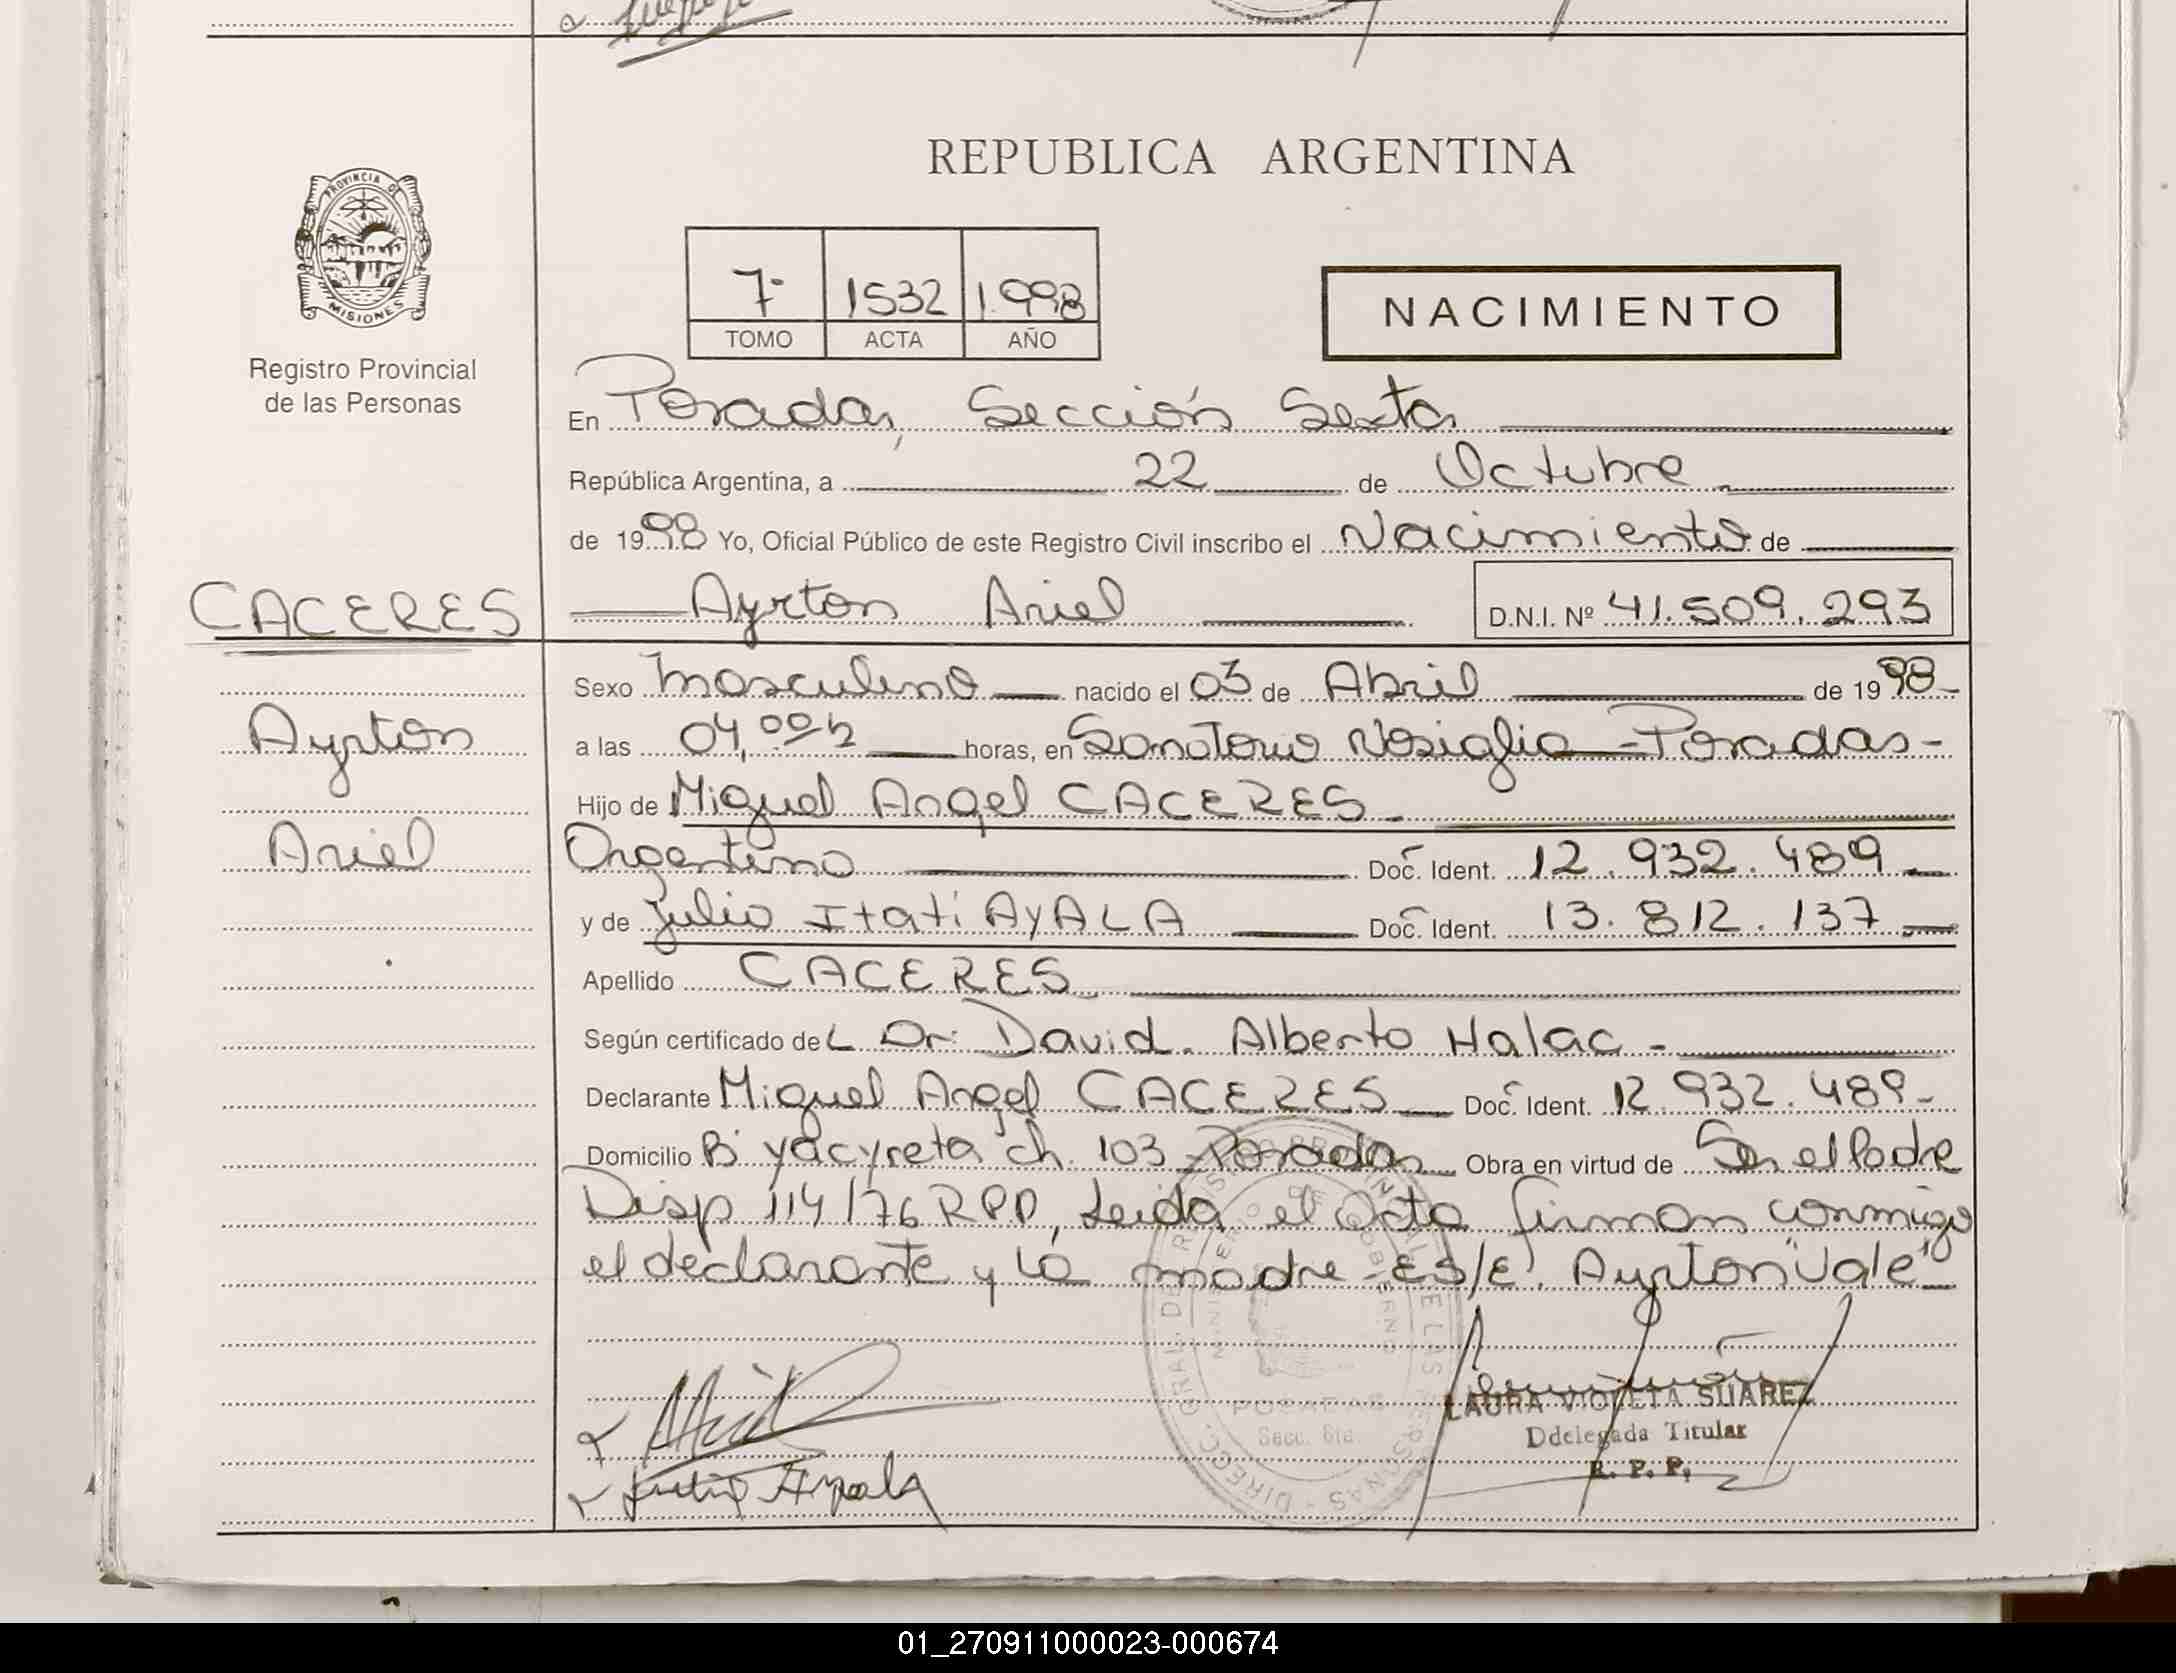 REPUBLICA ARGENTINA
PROVINCIA DE
MISIONES
Registro Provincial
de las Personas
7º 1532 1.998
TOMO ACTA AÑO
NACIMIENTO
En Posadas, Sección Sexta
República Argentina, a 22 de Octubre
de 1998 Yo, Oficial Público de este Registro Civil inscribo el Nacimiento de
CACERES
Ayrton Ariel D.N.I. Nº 41.509.293
Sexo Masculino nacido el 03 de Abril de 1998-
Ayrton
a las 04,00h horas, en Sanatorio Nosiglia - Posadas-
Hijo de Miguel Angel CACERES-
Ariel
Argentino Doc. Ident. 12.932.489
y de Julia Itati AYALA Doc. Ident. 13.812.137
Apellido CACERES
Según certificado deL Dr. David. Alberto Halac -
Declarante Miguel Angel CACERES Doc. Ident. 12.932.489-
Domicilio Bº yacyreta ch. 103 - Posadas Obra en virtud de Ser el Padre
Disp 114/76 RPP, Leida el Acta firman conmigo
el declarante y la madre - Es/E. Ayrton "Vale"
DIRECC. GRAL. DE REGISTRO PROVINCIAL DE LAS PERSONAS
MINISTERIO DE GOBIERNO
POSADAS
Secc. 6ta.
LAURA VIOLETA SUAREZ
Ddelegada Titular
R. P. P.
Julia Ayala
01_270911000023-000674